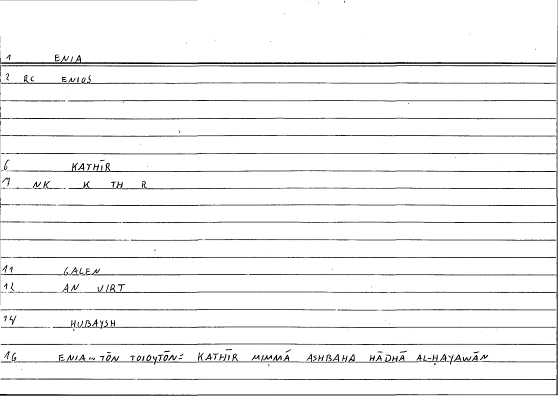 1 ENIA
2 RC ENIOS
6 KATHĪR
7 NK K TH R
11 GALEN
12 AN VIRT
14 ḤUBAYSH
16 ENIA ~ TŌN TOIOYTŌN = KATHĪR MIMMĀ ASHBAHA HĀDHĀ AL-ḤAYAWĀN